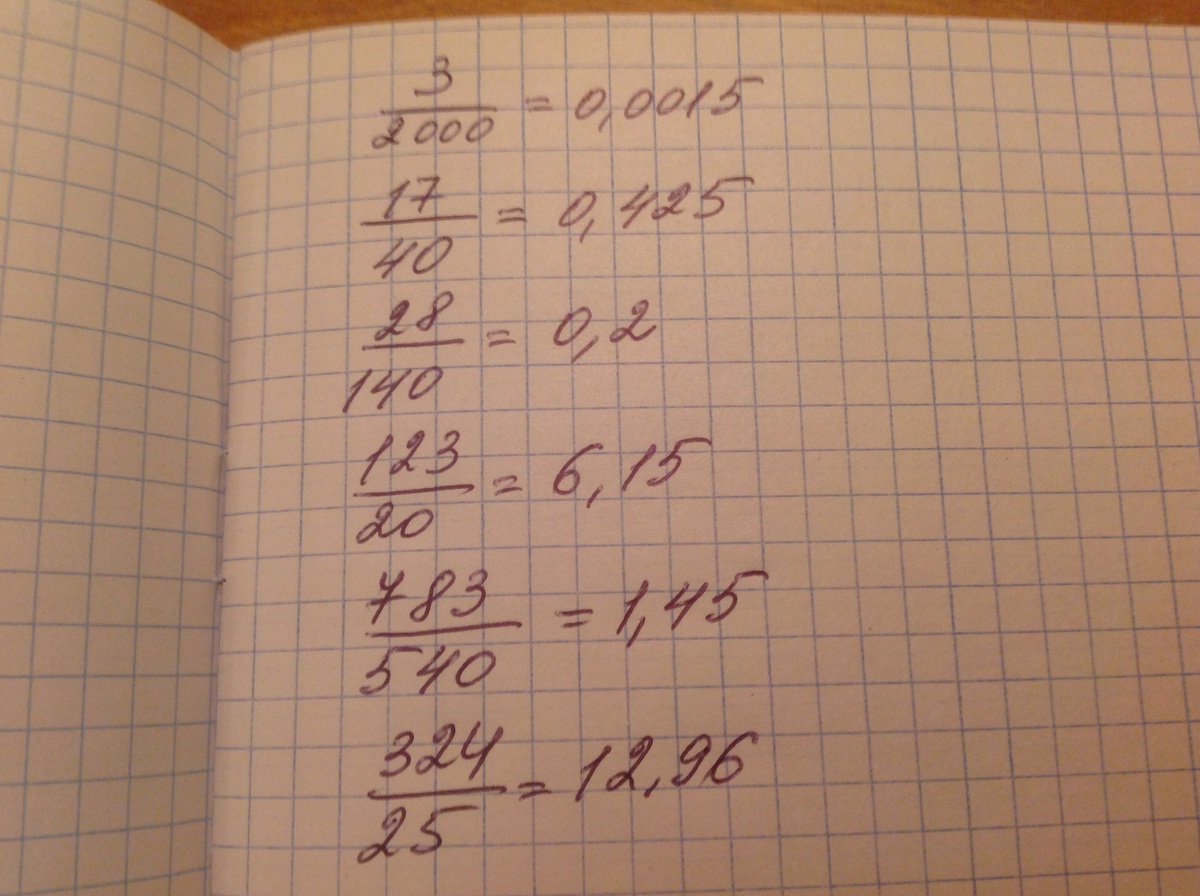 3/2000 = 0,0015
17/40 = 0,425
28/140 = 0,2
123/20 = 6,15
783/540 = 1,45
324/25 = 12,96